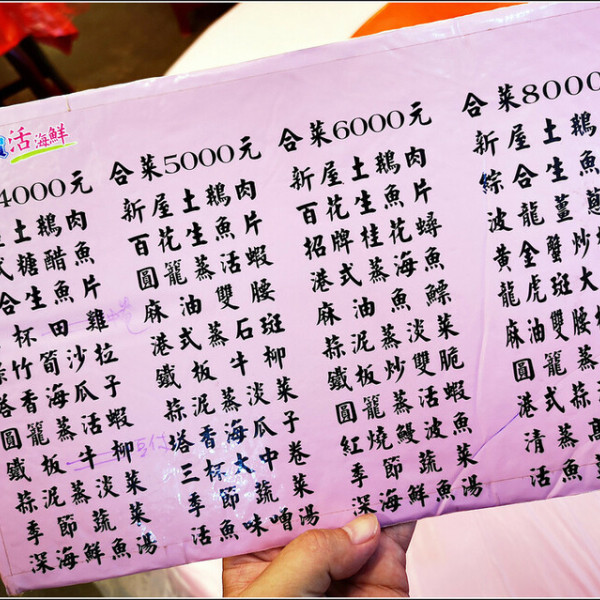 活海鮮
4000元
土鵝肉
式糖醋魚
合生魚片
杯田雞
竹筍沙拉
塔香海瓜子
圓籠蒸活蝦
鐵板牛柳
蒜泥蒸淡菜
季節蔬菜
深海鮮魚湯
合菜5000元
新屋土鵝肉
百花生魚片
圓籠蒸活蝦
麻油雙腰
港式蒸石斑
鐵板牛柳
蒜泥蒸淡菜
塔香海瓜子
三杯大中卷
季節蔬菜
活魚味噌湯
合菜6000元
新屋土鵝肉
百花生魚片
招牌桂花蟳
港式蒸海魚
麻油魚鰾
蒜泥蒸淡菜
鐵板炒雙脆
圓籠蒸活蝦
紅燒鰻波魚
季節蔬菜
深海鮮魚湯
合菜8000
新屋土鵝
綜合生魚
波龍薑蔥
黃金蟹炒
龍虎斑大
麻油雙腰
圓籠蒸
港式蒜
清蒸
活魚